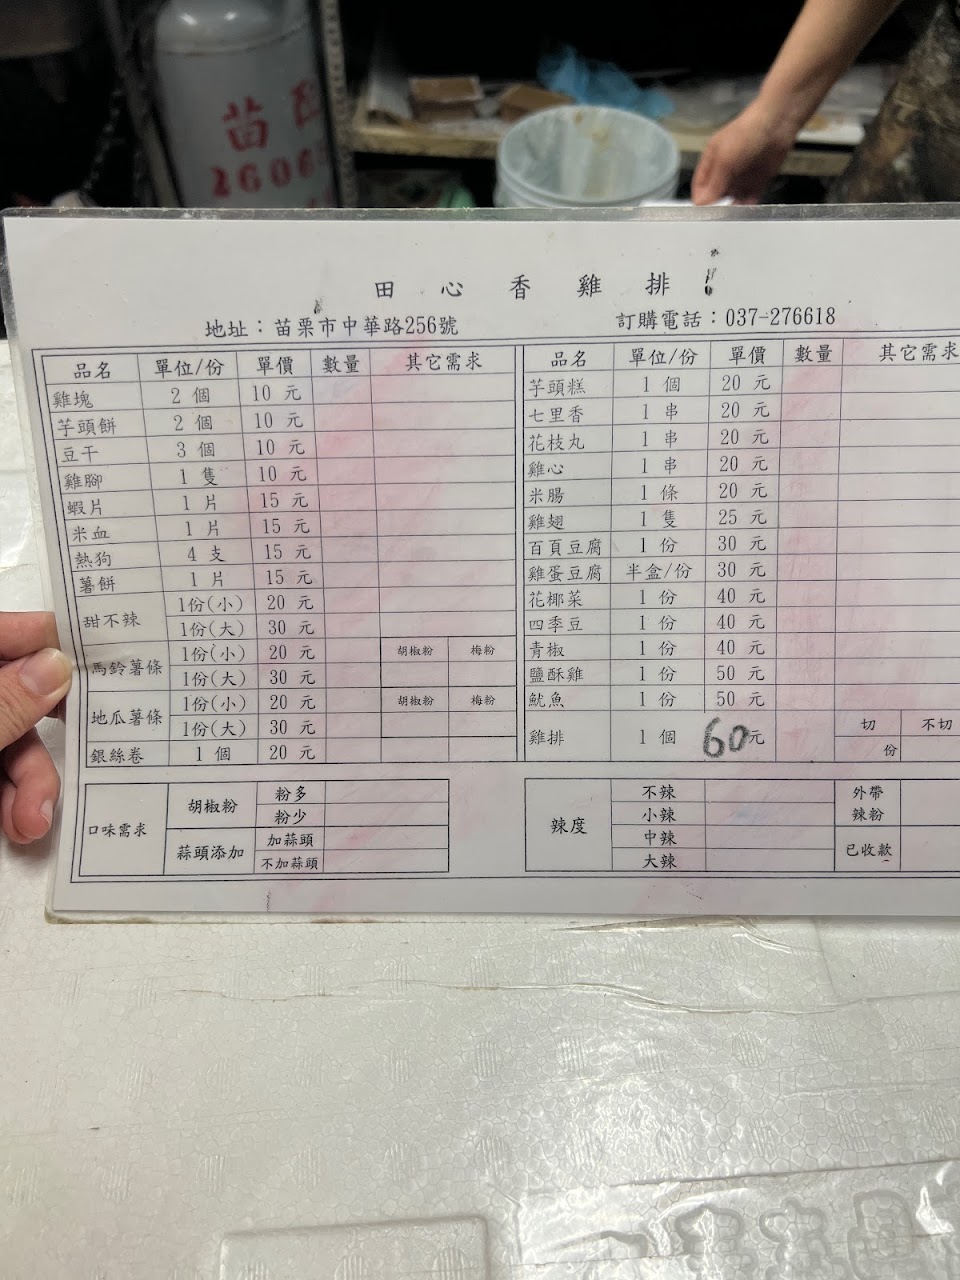 苗
2606
田心香雞排
地址：苗栗市中華路256號 訂購電話：037-276618
品名 單位/份 單價 數量 其它需求
雞塊 2 個 10 元
芋頭餅 2 個 10 元
豆干 3 個 10 元
雞腳 1 隻 10 元
蝦片 1 片 15 元
米血 1 片 15 元
熱狗 4 支 15 元
薯餅 1 片 15 元
甜不辣 1份(小) 20 元
1份(大) 30 元
馬鈴薯條 1份(小) 20 元 胡椒粉 梅粉
1份(大) 30 元
地瓜薯條 1份(小) 20 元 胡椒粉 梅粉
1份(大) 30 元
銀絲卷 1 個 20 元
品名 單位/份 單價 數量 其它需求
芋頭糕 1 個 20 元
七里香 1 串 20 元
花枝丸 1 串 20 元
雞心 1 串 20 元
米腸 1 條 20 元
雞翅 1 隻 25 元
百頁豆腐 1 份 30 元
雞蛋豆腐 半盒/份 30 元
花椰菜 1 份 40 元
四季豆 1 份 40 元
青椒 1 份 40 元
鹽酥雞 1 份 50 元
魷魚 1 份 50 元
雞排 1 個 60元 切 不切
份
口味需求 胡椒粉 粉多
粉少
蒜頭添加 加蒜頭
不加蒜頭
辣度 不辣
小辣
中辣
大辣
外帶
辣粉
已收款